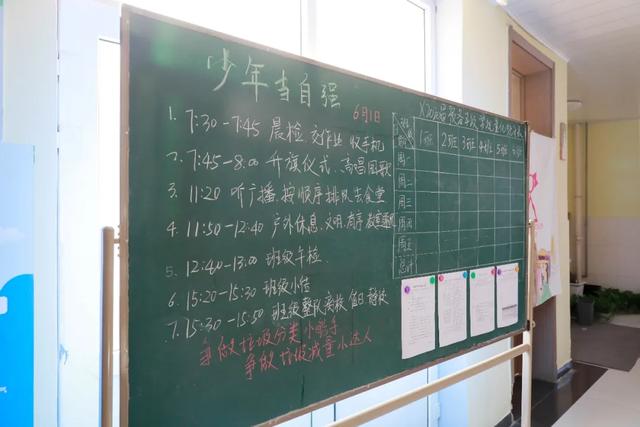 少年当自强
6月1日
1. 7:30-7:45 晨检 交作业 收手机
2. 7:45-8:00 升旗仪式、高唱国歌
3. 11:20 听广播、按顺序排队去食堂
4. 11:50-12:40 户外休息、文明、有序
5. 12:40-13:00 班级午检
6. 15:20-15:30 班级小结
7. 15:30-15:50 班级整队离校、值日
争做垃圾分类小能手
争做垃圾减量小达人
1班 2班 3班 4班 5班
周一
周二
周三
周四
周五
总计